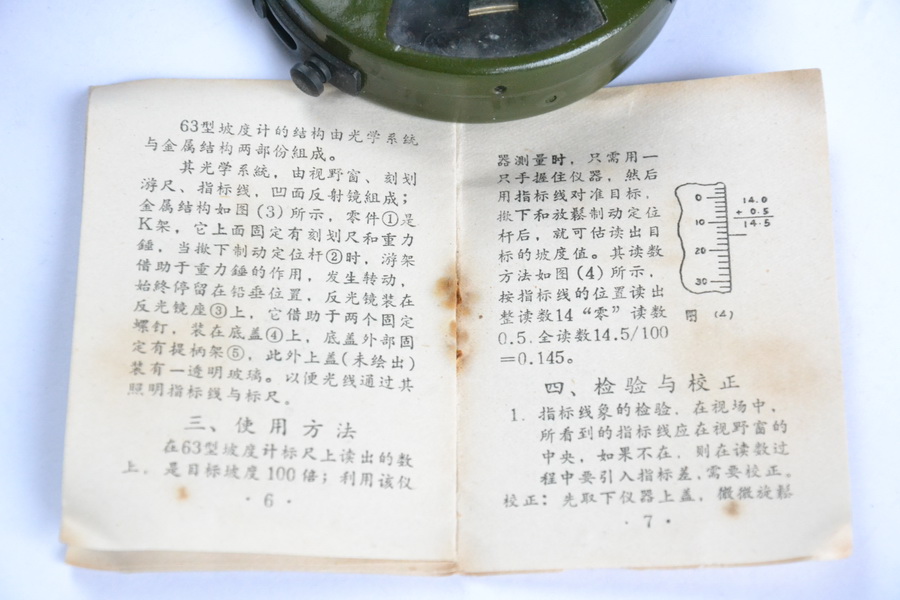 63型坡度计的结构由光学系统
与金属结构两部份組成。
其光学系統，由视野窗、刻划
游尺、指标线，凹面反射镜組成；
金属结构如图(3)所示，零件①是
K架，它上面固定有刻划尺和重力
錘，当揿下制动定位杆②时，游架
借助于重力錘的作用，发生转动，
始终停留在铅垂位置，反光镜装在
反光镜座③上，它借助于两个固定
螺钉，装在底盖④上，底盖外部固
定有提柄架⑤，此外上盖(未绘出)
装有一透明玻璃。以便光线通过其
照明指标线与标尺。
三、使用方法
在63型坡度计标尺上读出的数
上，是目标坡度100倍；利用该仪
·6·
器测量时，只需用一
只手握住仪器，然后
用指标线对准目标，
揿下和放鬆制动定位
杆后，就可估读出目
标的坡度值。其读数
方法如图(4)所示，
按指标线的位置读出
整读数14“零”读数
0.5.全读数14.5/100
=0.145。
0
10
20
30
14.0
+ 0.5
14.5
图 (4)
四、检验与校正
1. 指标线象的检验．在视场中，
所看到的指标线应在视野窗的
中央，如果不在．则在读数过
程中要引入指标差，需要校正。
校正：先取下仪器上盖，微微旋鬆
·7·